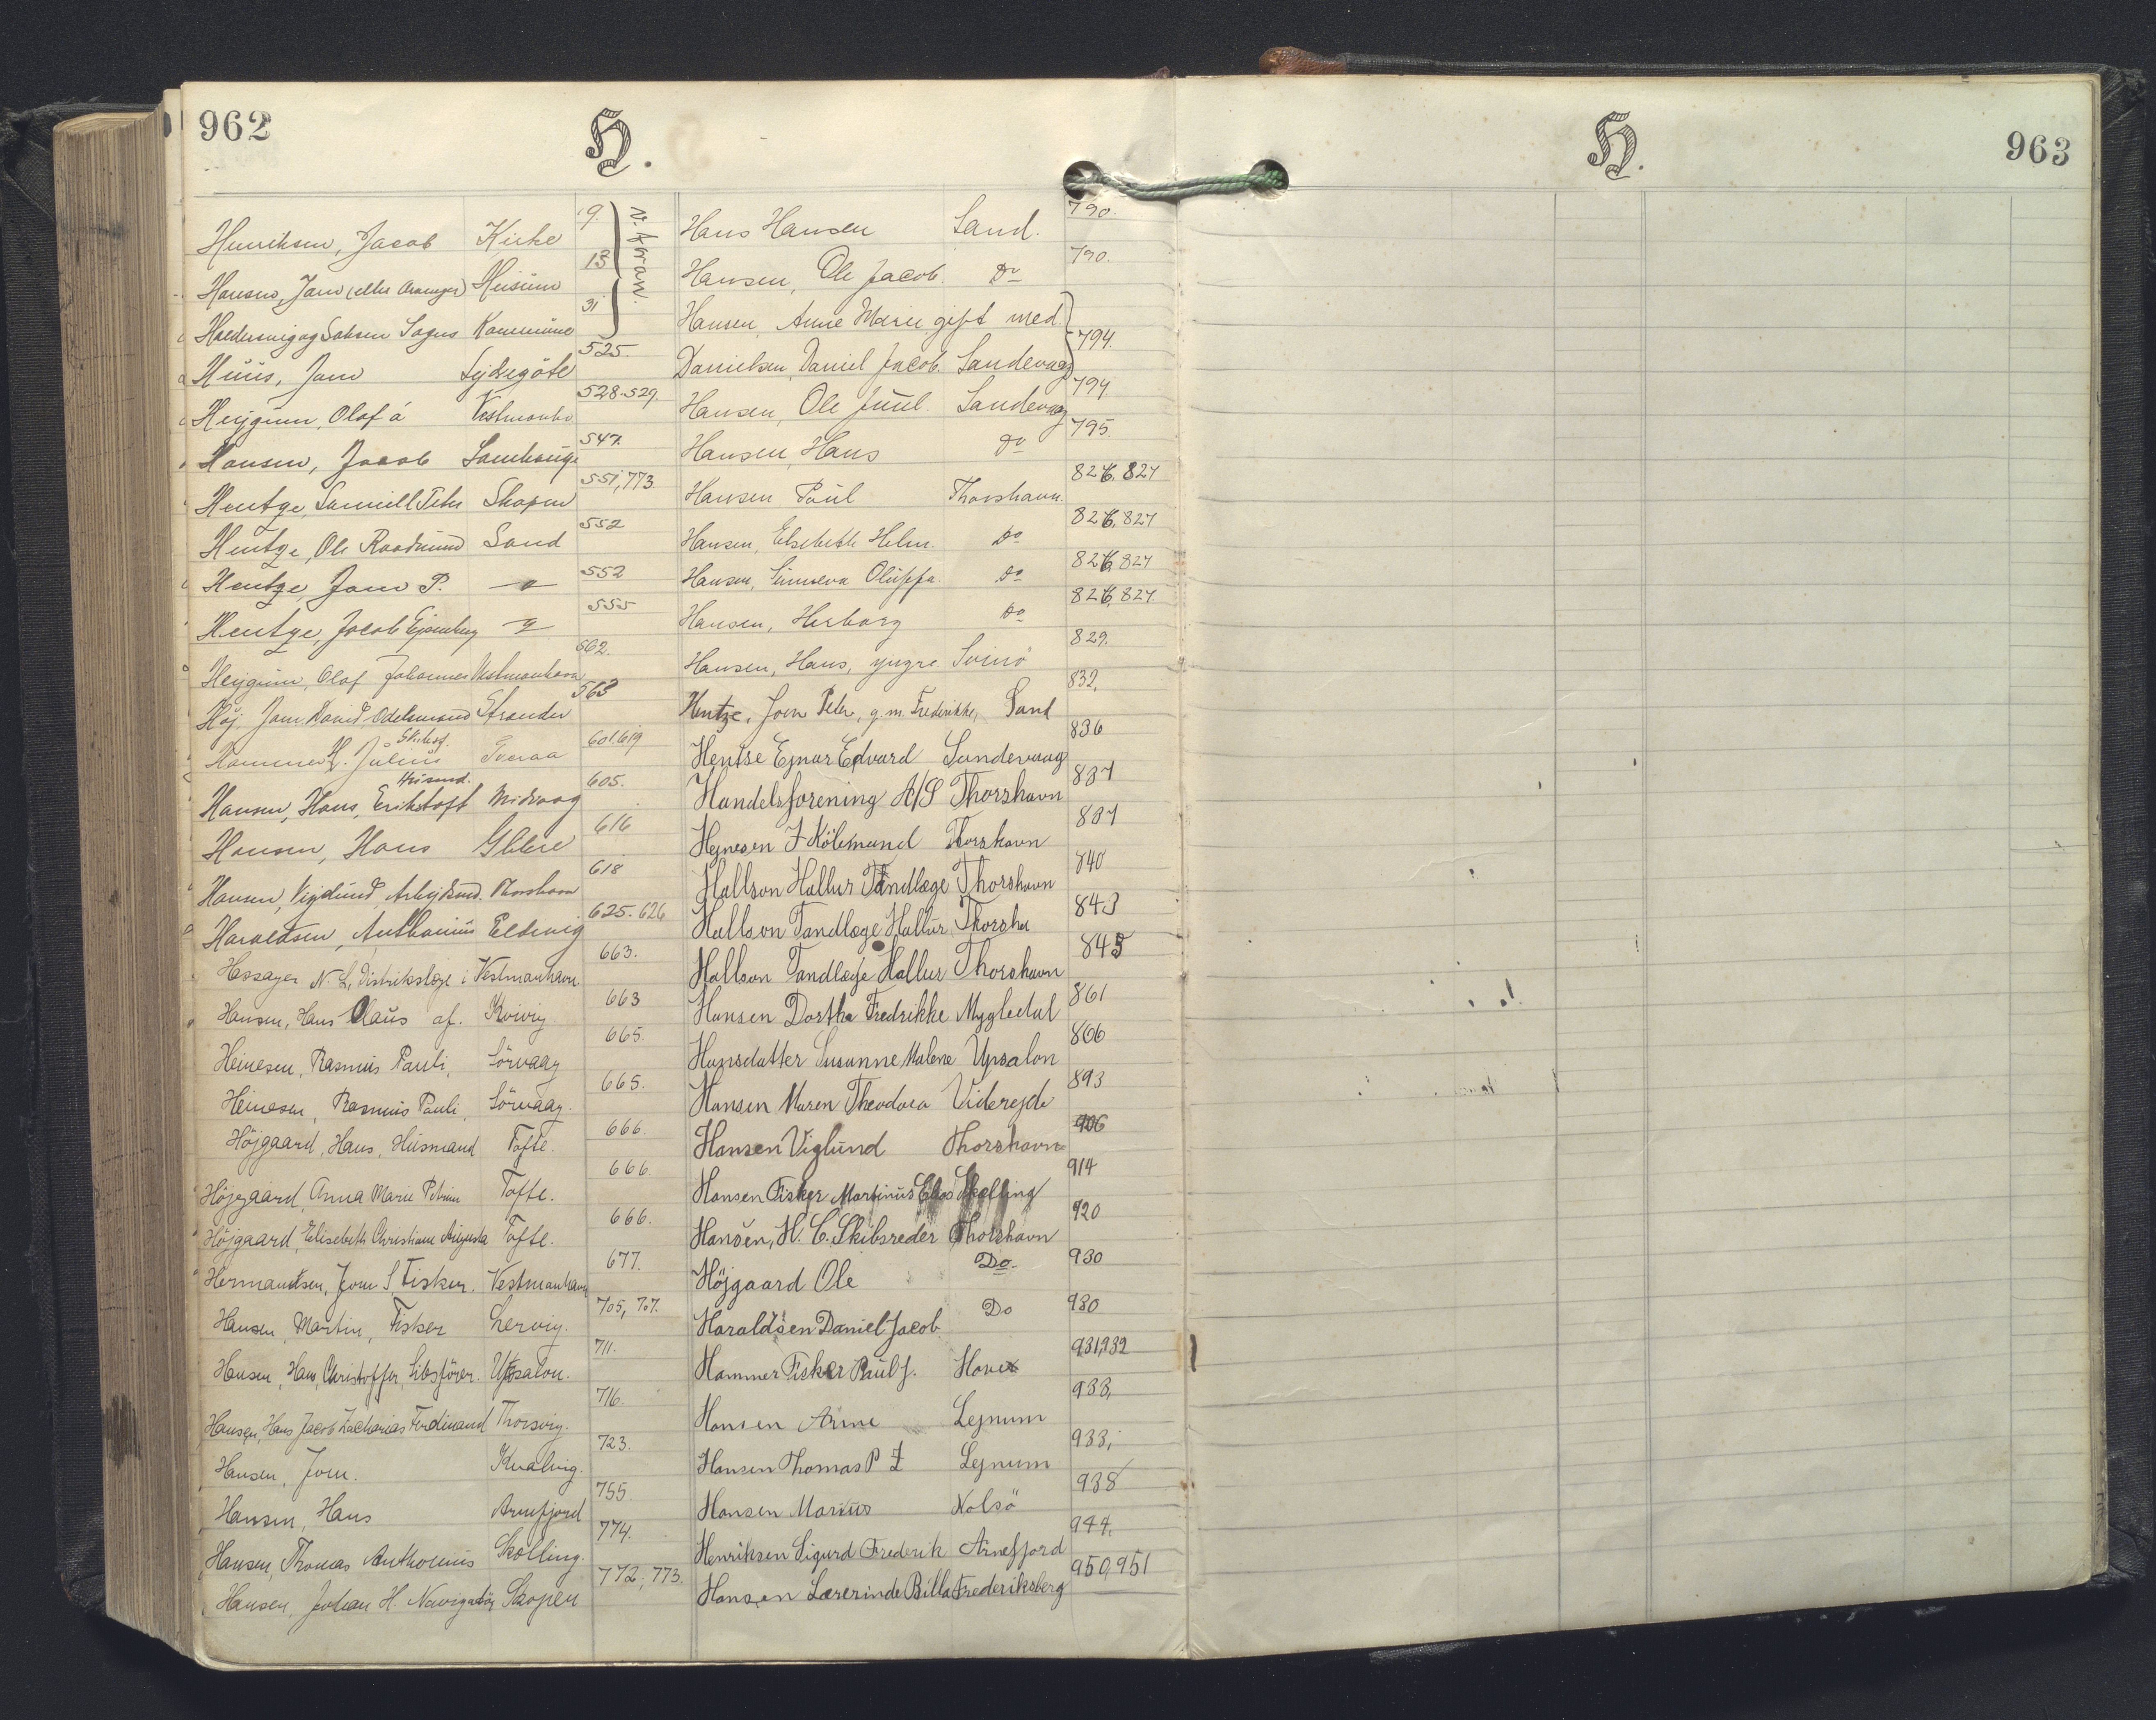 962
H.
Henriksen, Jacob Kirke 19.
Hansen, Jam (eller Husum 13
Haldersvig og Saksen Sogns Kommune 31
N. foran.
Huus, Jam Sydregöte 525.
Hejgum, Olaf á Vestmanhv 528-529.
Hansen, Jacob Lambareige 547.
Hentze, Samuell Peter Skopen 551, 773.
Hentze, Ole Raadmund Sand 552
Hentze, Jam P. -"- 552
Hentze, Jacob Ejsenberg -"- 555
Hejgum, Olaf Johannes Vestmanhavn 562.
Höj Jam David Odelsmand Strender 563
Hammer H. Julius Skibsf. Tveraa 601.619
Hansen, Hans, Erikstoft Husmd. Midvaag 605.
Hansen, Hans Glibre 616
Hansen, Viglund, Arbejdsmd. Thorshavn 618
Haraldsen, Anthonius Eldevig 625. 626
Hessayer N. L, Distrikslæge i Vestmanhavn 663.
Hansen, Hans Claus af. Kvivig 663
Heinesen, Rasmus Pauli, Sörvaag 665.
Heinesen, Rasmus Pauli, Sörvaag. 665.
Höjgaard, Hans, Husmand Tofte. 666.
Höjgaard, Anna Marie Petrine Tofte. 666.
Höjgaard, Elisebeth Christiane Augusta Tofte. 666.
Hermandsen, Joen S, Fisker. Vestmanhavn 677.
Hansen, Martin, Fisker Lervig. 705, 707.
Hansen, Hans, Christoffer, Sibsförer. Upsalon. 711.
Hansen, Hans Jacob Zacharias Ferdinand Thorsvig. 716.
Hansen, Joen. Kvalvig. 723.
Hansen, Hans Arnefjord 755.
Hansen, Thomas Anthonius Skælling. 774.
Hansen, Johan H. Navigatör Skopen 772, 773.
Hans Hansen Sand. 790.
Hansen, Ole Jacob. Do 790.
Hansen, Anne Marie gift med
Danielsen, Daniel Jacob. Sandevaag 794.
Hansen, Ole Juul. Sandevaag 794.
Hansen, Hans Do 795.
Hansen Paul Thorshavn. 826, 827
Hansen, Elsebeth Helen. Do 826, 827
Hansen, Sunneva Oluffa. Do 826, 827
Hansen, Herborg Do 826, 827.
Hansen, Hans, yngre. Svinö 829.
Hentze, Joen Peter, g. m. Frederikke, Sand 832,
Hentse Ejnar Edvard Sandevaag 836
Handelsforening A/S Thorshavn 837
Hejnesen J Köbmand Thorshavn 837
Hallson Hallur Tandlæge Thorshavn 840
Hallson Tandlæge Hallur Thorsha 843
Hallson Tandlæge Hallur Thorshavn 845
Hansen Dorthe Fredrikke Mygledal 861
Hansdatter Susanne Malene Upsalon 866
Hansen Maren Theodora Viderejde 893
Hansen Viglund Thorshavn 906
Hansen Fisker Martinus Elias Skælling 914
Hansen, H. C. Skibsreder Thorshavn 920
Höjgaard Ole Do. 930
Haraldsen Daniel Jacob Do 930
Hammer Fisker Paul J. Hove 931,932
Hansen Arne Lejnum 933,
Hansen Thomas P Z Lejnum 933,
Hansen Marius Nolsö 938
Henriksen Sigurd Frederik Arnefjord 944.
Hansen Lærerinde Billa Frederiksberg 950,951
H.
963